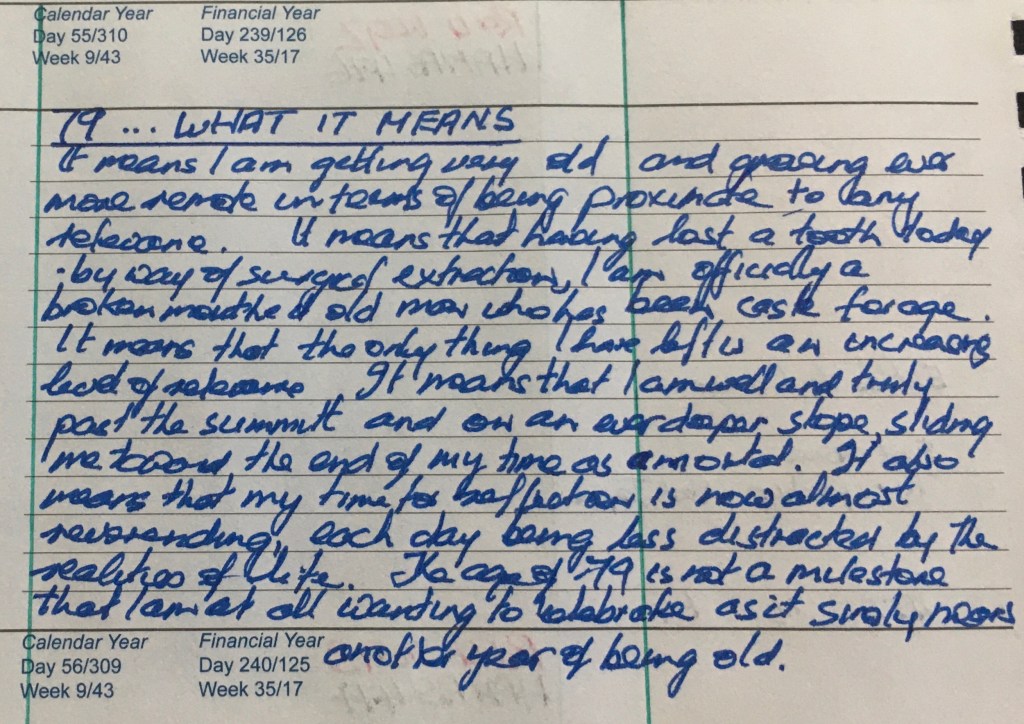 Calendar Year Financial Year
Day 55/310 Day 239/126
Week 9/43 Week 35/17
79 ... WHAT IT MEANS
It means I am getting very old and growing ever
more remote in terms of being proximate to any
relevance. It means that having lost a tooth today
- by way of surgical extraction, I am officially a
broken mouthed old man who has been cast for age.
It means that the only thing I have left is an increasing
level of relevance It means that I am well and truly
past the summit and on an ever deeper slope, sliding
me toward the end of my time as a mortal. It also
means that my time for reflection is now almost
neverending, each day being less distracted by the
realities of life. The age of 79 is not a milestone
that I am at all wanting to celebrate as it simply means
another year of being old.
Calendar Year Financial Year
Day 56/309 Day 240/125
Week 9/43 Week 35/17